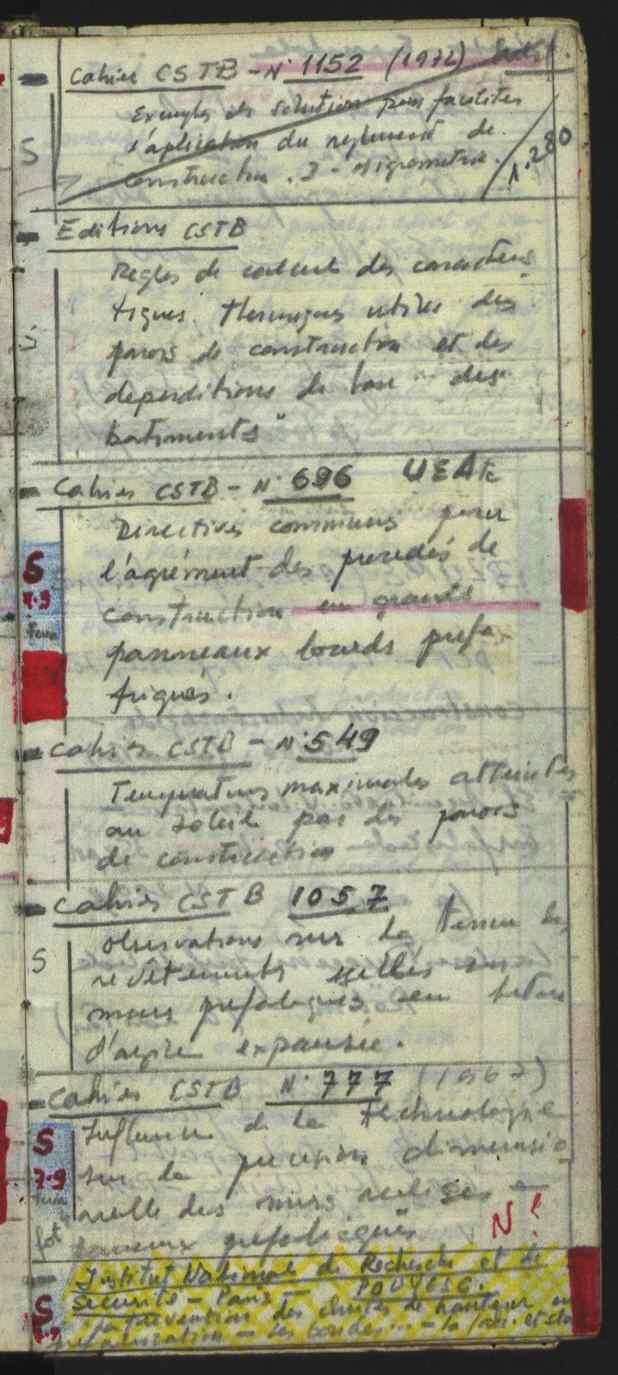 Cahier CSTB - N° 1152 (1972)
Exemples de solution pour faciliter
l'aplication du reglement de
Construction. I - Higrometrie.
1.280
S
Editions CSTB
Regles de calcul des caracteris
tiques thermiques utiles des
parois de construction et des
deperditions de base des
batiments"
S
Cahier CSTB - N° 696 UEAtc
Directives communes pour
l'agrément des procedés de
construction en grands
panneaux lourds prefa
friqués.
S
7-9
Cahier CSTB - N° 549
Temperatures maximales atteintes
au soleil par les parois
de construction
Cahier CSTB 1057
Observations sur la tenue des
revêtements scellés sur
murs prefabriqués en beton
d'argile expansée.
S
Cahier CSTB N° 777 (1967)
Influence de la technologie
sur la precision dimensio
nelle des murs realisés en
panneaux prefabriqués
S
7-9
fot
N°
Institut National de Recherche et de
Securité - Paris - POUYESC.
La prevention des chutes de hauteur en
prefabrication - les
S
7-9